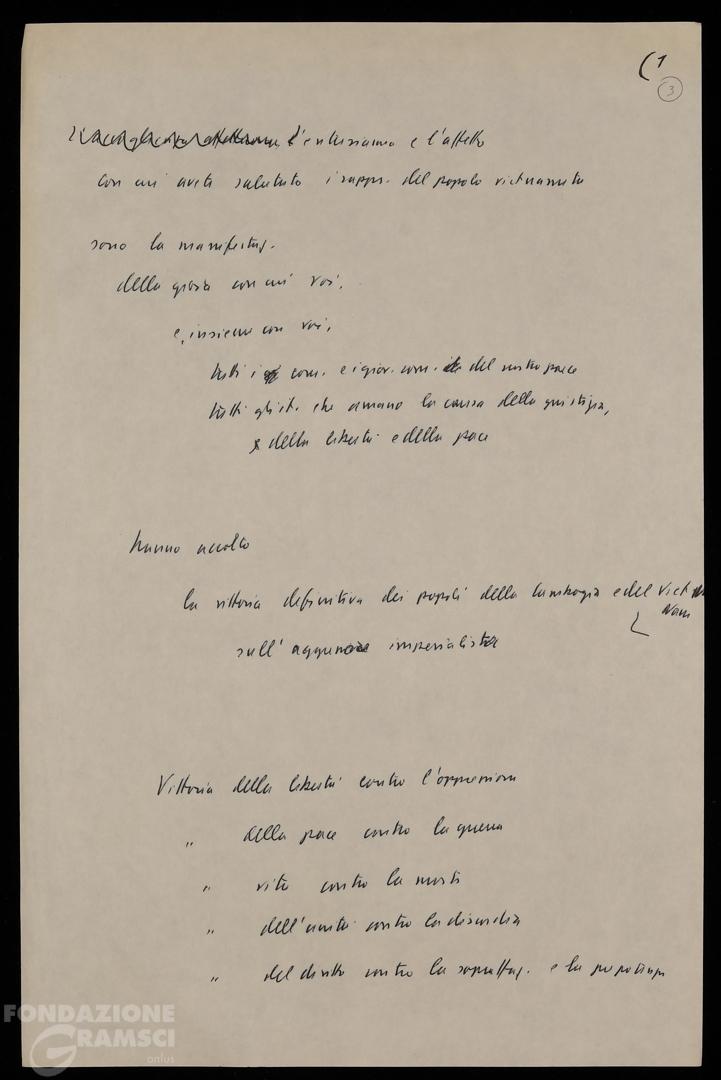 (1
3
l'entusiasmo e l'affetto
con cui avete salutato i rappr. del popolo vietnamita
sono la manifestaz.
della gioia con cui voi,
e, insieme con voi,
tutti i com. e i giov. com. del nostro paese
tutti gli it. che amano la causa della giustizia,
della libertà e della pace
hanno accolto
la vittoria definitiva dei popoli della Cambogia e del Viet
Nam
sull'aggressore imperialista
Vittoria della libertà contro l'oppressione
" della pace contro la guerra
" vita contro la morte
" dell'unità contro la discordia
" del diritto contro la sopraffaz. e la prepotenza
FONDAZIONE
GRAMSCI
onlus